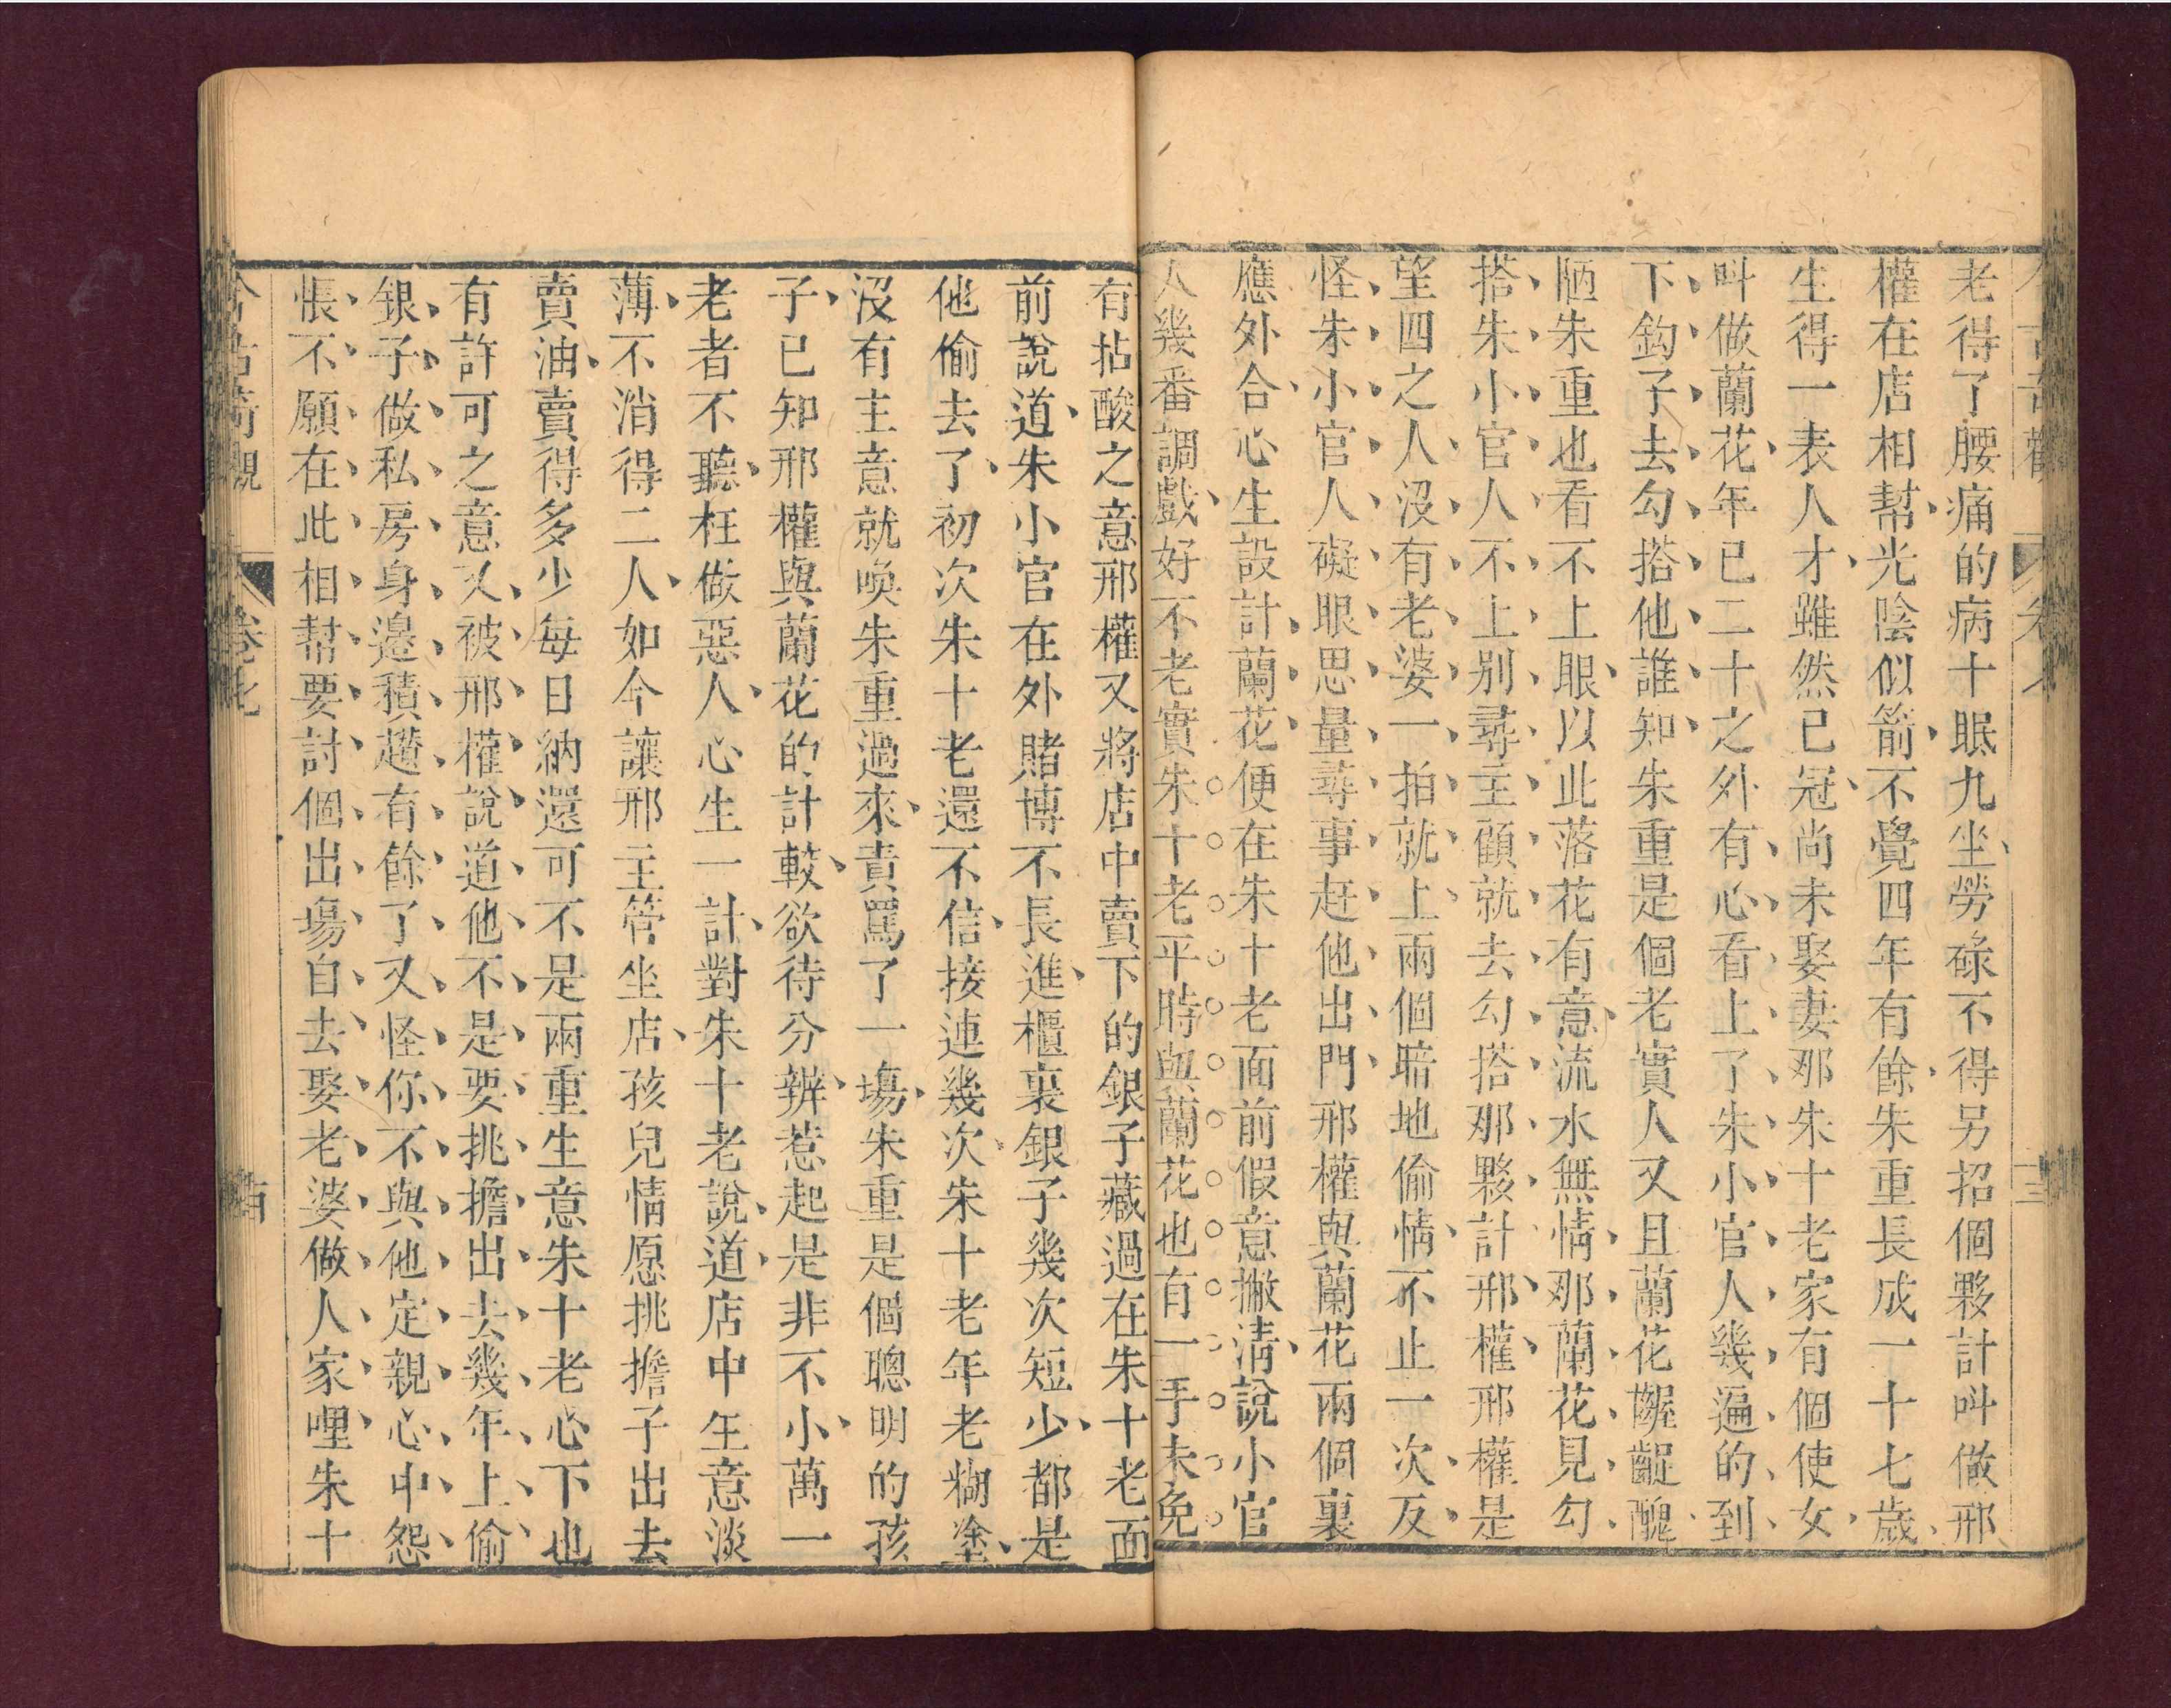 老得了腰痛的病十眠九坐勞碌不得另招個夥計呌做邢
權在店相幫光陰似箭不覺四年有餘朱重長成一十七歲
生得一表人才雖然已冠尚未娶妻那朱十老家有個使女
呌做蘭花年已二十之外有心看上了朱小官人幾遍的到
下鈎子去勾搭他誰知朱重是個老實人又且蘭花齷齪醜
陋朱重也看不上眼以此落花有意流水無情那蘭花見勾
搭朱小官人不上别尋主顧就去勾搭那夥計邢權邢權是
望四之人沒有老婆一拍就上兩個暗地偷情不止一次反
怪朱小官人礙眼思量尋事赶他出門邢權與蘭花兩個裏
應外合心生設計蘭花便在朱十老面前假意撇清說小官
人幾番調戲好不老實朱十老平時與蘭花也有一手未免
有拈酸之意邢權又將店中賣下的銀子藏過在朱十老面
前說道朱小官在外賭博不長進櫃裏銀子幾次短少都是
他偷去了初次朱十老還不信接連幾次朱十老年老糊塗
沒有主意就喚朱重過來責罵了一塲朱重是個聰明的孩
子已知邢權與蘭花的計較欲待分辨惹起是非不小萬一
老者不聽枉做惡人心生一計對朱十老說道店中生意淡
薄不消得二人如今讓邢主管坐店孩兒情愿挑擔子出去
賣油賣得多少每日納還可不是兩重生意朱十老心下也
有許可之意又被邢權說道他不是要挑擔出去幾年上偷
銀子做私房身邊積趲有餘了又怪你不與他定親心中怨
悵不願在此相幫要討個出塲自去娶老婆做人家哩朱十
今古奇觀 卷七